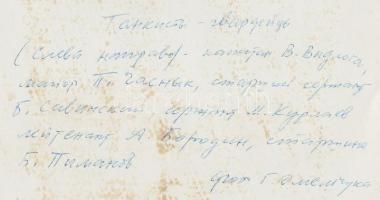 Танкисты - гвардейцы
(слева направо) - капитан В. Видлога,
майор П. Часнык, старший сержант
Б. Савинский, сержант М. Курлаев
лейтенант А. Бородин, старшина
Б. Пиманов
фото Г. Омельчука